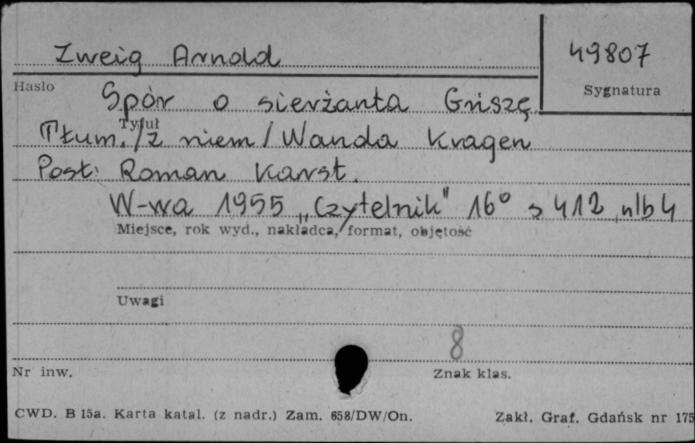 Zweig Arnold
49807
Hasło
Sygnatura
Spór o sierżanta Griszę
Tytuł
Tłum. /z niem/ Wanda Kragen
Posł: Roman Karst.
W-wa 1955 „Czytelnik" 16° s 412 nlb 4
Miejsce, rok wyd., nakładca, format, objętość
Uwagi
8
Nr inw.
Znak klas.
CWD. B 15a. Karta katal. (z nadr.) Zam. 658/DW/On.
Zakł. Graf. Gdańsk nr 175